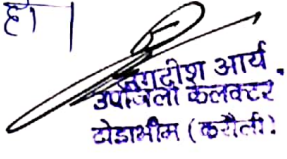 हो।
जगदीश आर्य
उपजिला कलक्टर
टोडाभीम (करौली)